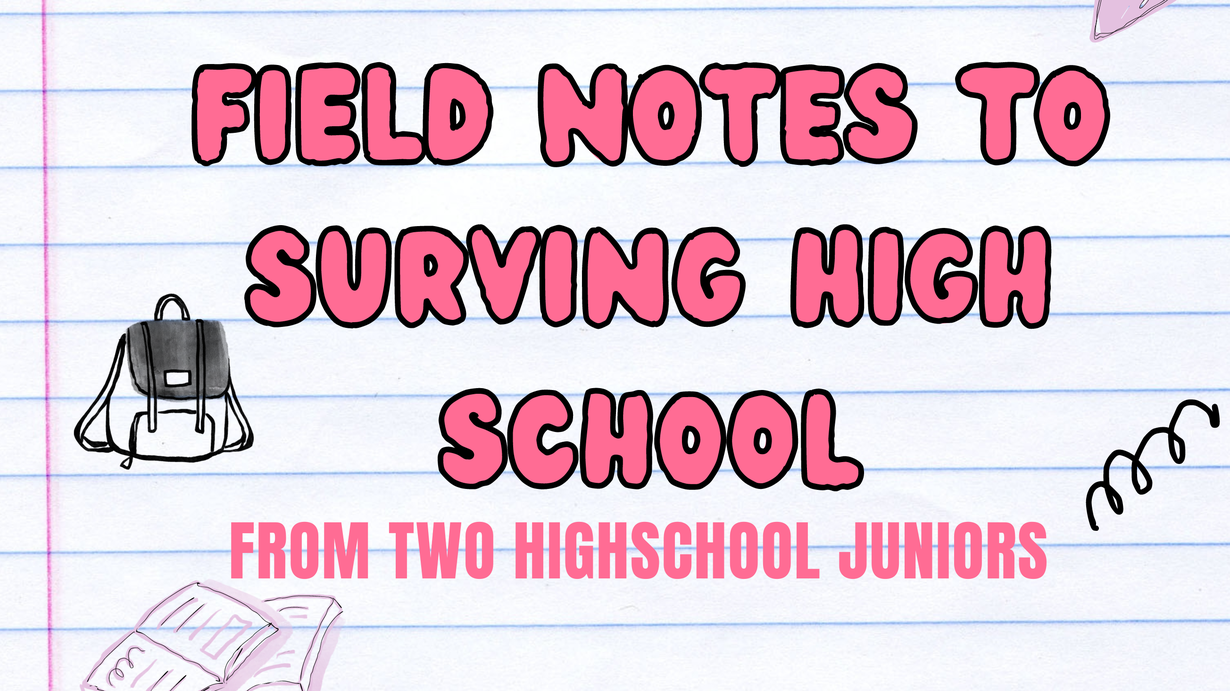 FIELD NOTES TO
SURVING HIGH
SCHOOL
FROM TWO HIGHSCHOOL JUNIORS